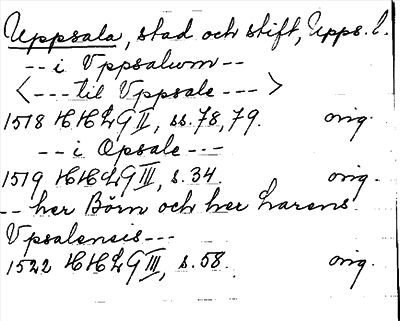 Uppsala, stad och stift, Upps. l.
--- i Vppsalum --
<--- til Vppsale --->
1518 HHLG II, ss. 78, 79. orig.
--- i Opsale ---
1519 HHLG III, s. 34. orig.
-- her Börn och her Larens
Vpsalenses ---
1522 HHLG III, s. 58. orig.